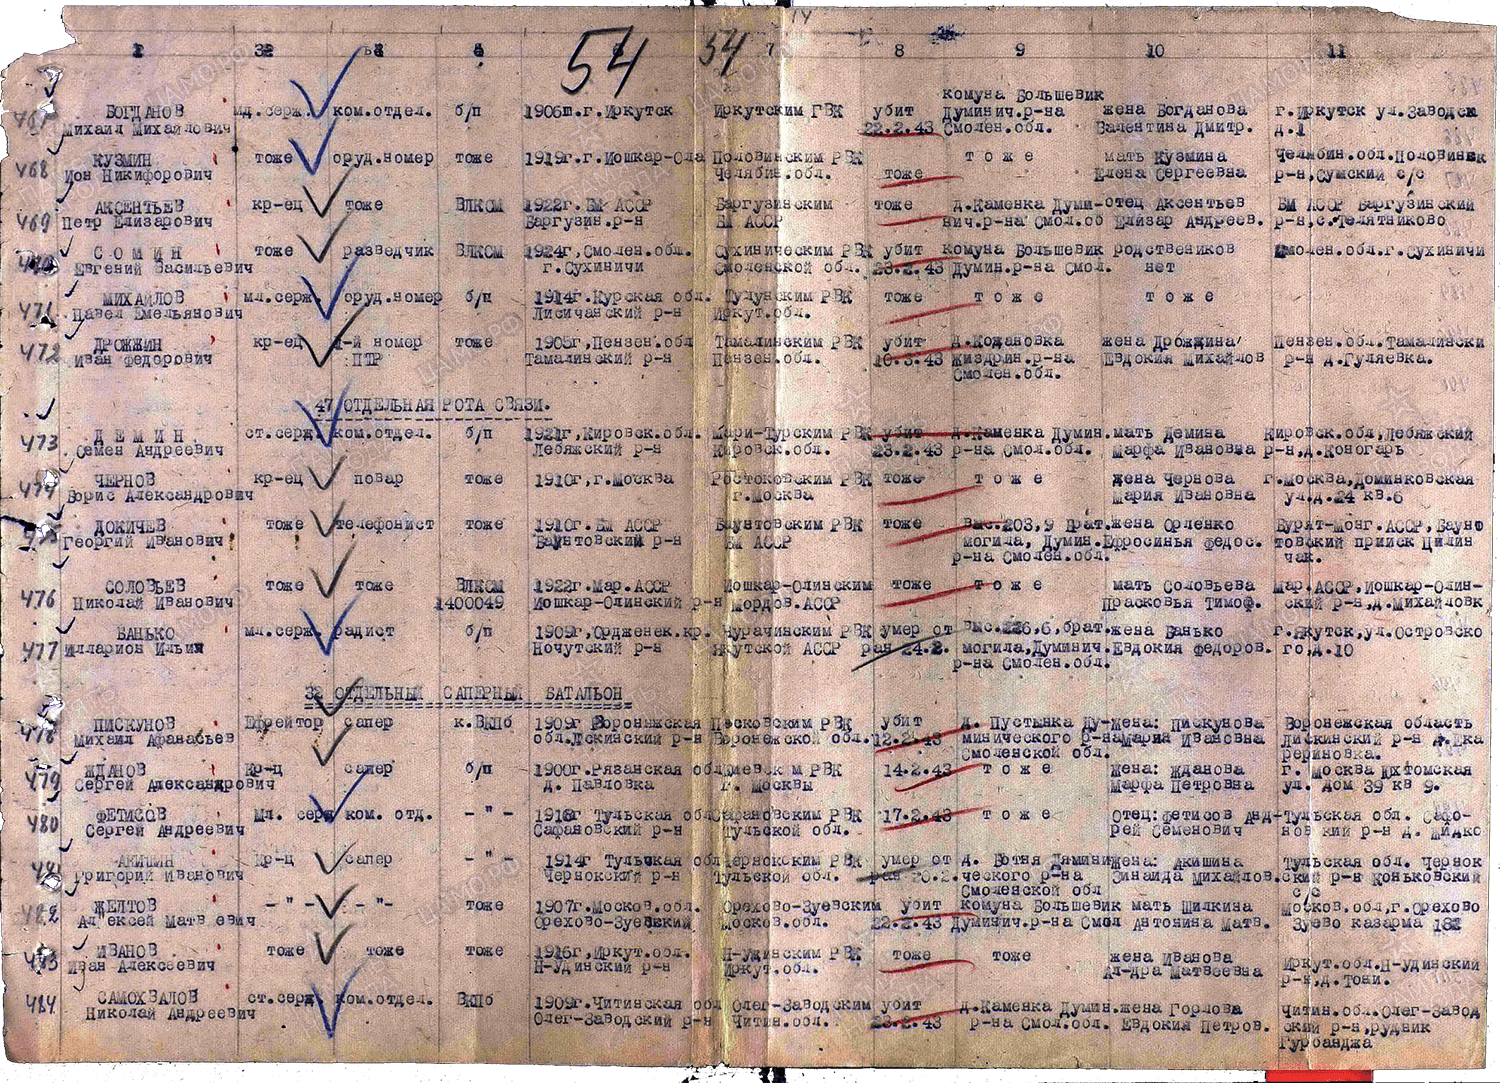 54 54
1 32 5 6 7 8 9 10 11
комуна Большевик
БОГДАНОВ мл.серж. ком.отдел. б/п 1906ш.г.Иркутск Иркутским ГВК убит Думинич.р-на жена Богданова г.Иркутск ул.Заводск
Михаил Михайлович 22.2.43 Смолен.обл. Валентина Дмитр. д.1
468 КУЗМИН тоже оруд.номер тоже 1919г.г.Иошкар-Ола Половинским РВК тоже мать Кузмина Челябин.обл.Половинск
Ион Никифорович Челябин.обл. тоже Елена Сергеевна р-н,Сумский с/с
469 АКСЕНТЬЕВ кр-ец тоже ВЛКСМ 1922г.БМ АССР Баргузинским тоже д.Каменка Думи- отец Аксентьев БМ АССР Баргузинский
Петр Елизарович Баргузин.р-н БМ АССР нич.р-на Смол.об Елизар Андреев. р-н,с.Телятниково
СОМИН тоже разведчик ВЛКСМ 1924г,Смолен.обл. Сухиническим РВК убит комуна Большевик родствеников Смолен.обл.г.Сухиничи
Евгений Васильевич г.Сухиничи Смоленской обл. 23.2.43 Думин.р-на Смол. нет
471 МИХАЙЛОВ мл.серж. оруд.номер б/п 1914г.Курская обл. Тулунским РВК тоже тоже тоже
Павел Емельянович Лисичанский р-н Иркут.обл.
472 ДРОЖЖИН кр-ец 1-й номер тоже 1905г,Пензен.обл Тамалинским РВК убит д.Кодановка жена Дрождина Пензен.обл.Тамалински
Иван Федорович ПТР Тамалинский р-н Пензен.обл. 10.3.43 Жиздрин.р-на Евдокия Михайлов р-н д.Гуляевка.
Смолен.обл.
47 ОТДЕЛЬНАЯ РОТА СВЯЗИ.
473 ДЕМИН ст.серж. ком.отдел. б/п 1921г,Кировск.обл. Мари-Турским РВК убит д.Каменка Думин. мать Демина Кировск.обл,Лебяжский
Семен Андреевич Лебяжский р-н Кировск.обл. 23.2.43 р-на Смол.обл. Марфа Ивановна р-н,д.Коногарь
474 ЧЕРНОВ кр-ец повар тоже 1910г,г.Москва Ростоковским РВК тоже тоже жена Чернова г.Москва,Доминковская
Борис Александрович г.Москва Мария Ивановна ул.д.24 кв.6
ДОКИЧЕВ тоже телефонист тоже 1910г.БМ АССР Баунтовским РВК тоже Выс.203,9 Брат. жена Орленко Бурят-Монг.АССР,Баунф
Георгий Иванович Баунтовским р-н БМ АССР могила, Думин. Ефросинья Федос. товский прииск Ципин
р-на Смолен.обл. чак.
476 СОЛОВЬЕВ тоже тоже ВЛКСМ 1922г.Мар.АССР Иошкар-Олинским тоже тоже мать Соловьева Мар.АССР,Иошкар-Олин-
Николай Иванович 1400049 Иошкар-Олинский р-н Мордов.АССР Прасковья Тимоф. ский р-н,д.Михайловк
477 БАНЬКО мл.серж. радист б/п 1909г,Орджонек.кр. Чурачинским РВК умер от Выс.226,6,брат. жена Банько г.Якутск,ул.Островско
Илларион Ильич Ночутский р-н Якутской АССР ран 24.2. могила,Думинич. Евдокия Федоров. го,д.10
р-на Смолен.обл.
32 ОТДЕЛЬНЫЙ САПЕРНЫЙ БАТАЛЬОН
478 ПИСКУНОВ Ефрейтор сапер к.ВКПб 1909г Воронежская Песковским РВК убит д. Пустынка Ду- Жена: Пискунова Воронежская область
Михаил Афанасьев обл.Лискинский р-н Воронежской обл. 12.2.43 минического р-на Мария Ивановна Лискинский р-н
Смоленской обл.
479 ЖДАНОВ Кр-ц сапер б/п 1900г.Рязанская обл РВК 14.2.43 тоже Жена: Жданова г. Москва Ухтомская
Сергей Александрович д. Павловка г. Москвы Марфа Петровна ул. дом 39 кв 9.
480 ФЕТИСОВ Мл. серж ком. отд. -"- 1918г Тульская обл Сафановским РВК 17.2.43 тоже Отец:Фетисов Анд- Тульская обл. Сафо-
Сергей Андреевич Сафановский р-н Тульской обл. рей Семенович р-н д. Жидко
АКИШИН Кр-ц сапер -"- 1914г Тульская обл Чернокским РВК умер от д. Вотня Думини Жена: Акишина Тульская обл. Чернок
Григорий Иванович Чернокский р-н Тульской обл. ческого р-на Зинаида Михайлов. ский р-н Коньковский
Смоленской обл с/с
482 ЖЕЛТОВ -"- -"- тоже 1907г.Москов.обл. Орехово-Зуевским убит комуна Большевик мать Шилкина Москов.обл,г.Орехово
Алексей Матвеевич Орехово-Зуевский Москов.обл. 22.2.43 Думинич.р-на Смол Антонина Матв. Зуево казарма 181
483 ИВАНОВ тоже тоже тоже 1916г.Иркут.обл. Н-удинским РВК тоже тоже жена Иванова Иркут.обл.Н-удинский
Иван Алексеевич Н-Удинский р-н Иркут.обл. Ал-дра Матвеевна р-н,д.Тони.
484 САМОХВАЛОВ ст.серж. ком.отдел. ВКПб 1909г.Читинская обл Олег-Заводским убит д.Каменка Думин. жена Горлова Читин.обл.Олег-Завод
Николай Андреевич Олег-Заводский р-н Читин.обл. 23.2.43 р-на Смол.обл. Евдокия Петров. ский р-н,рудник
Гурбанджа